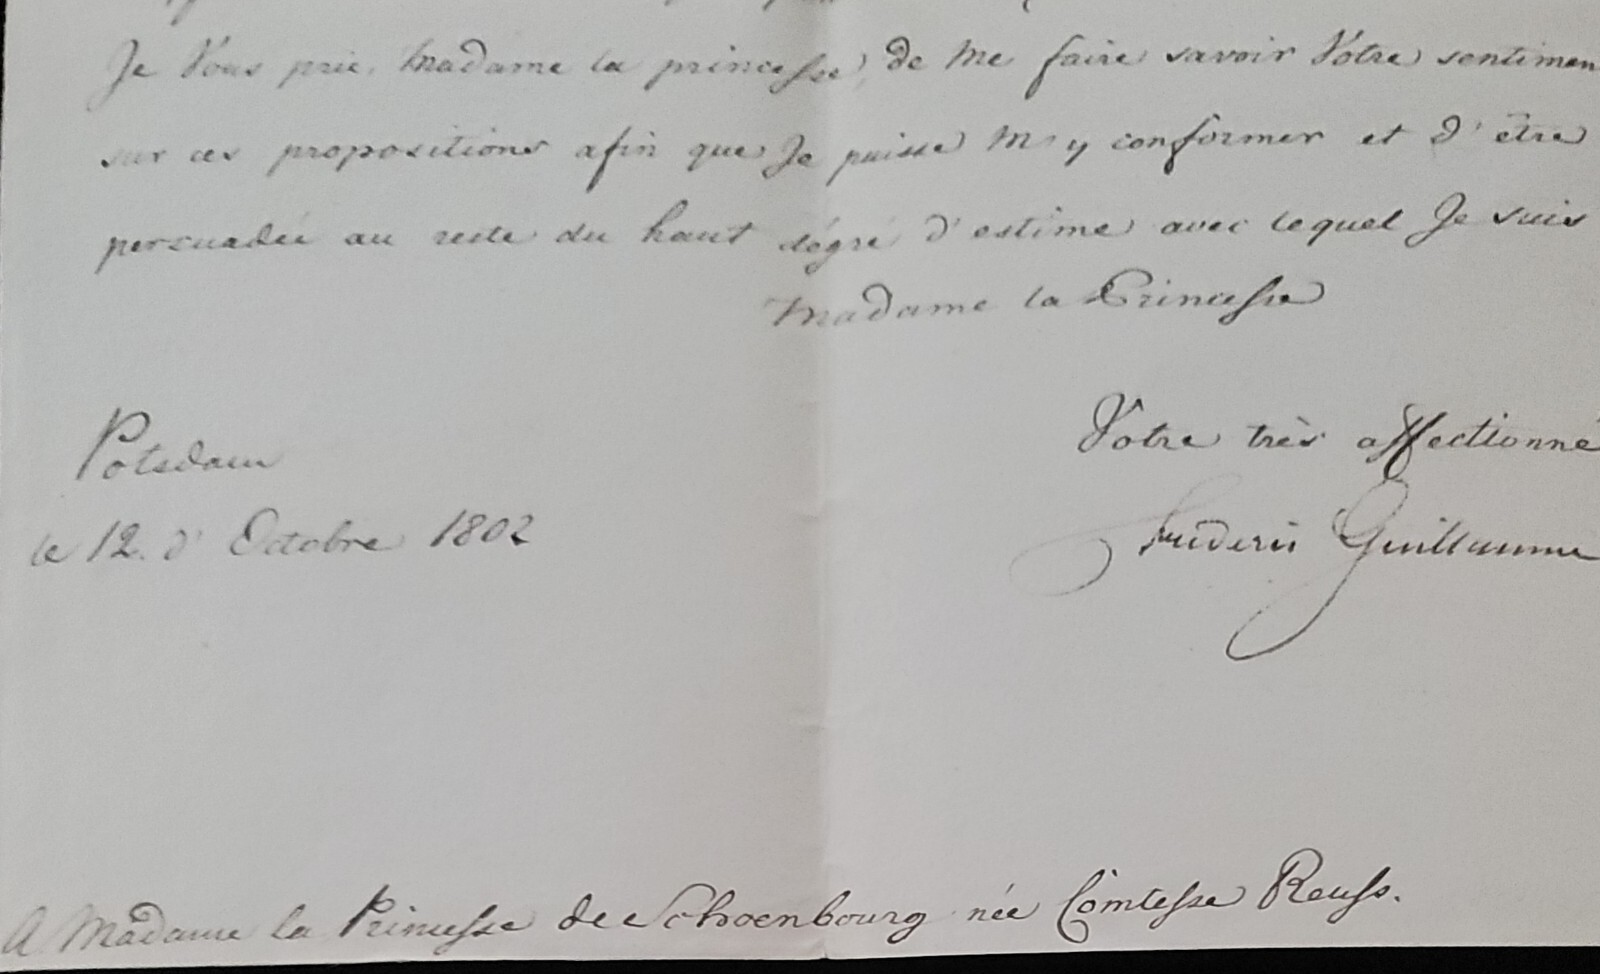 Je Vous prie, Madame la princesse, de Me faire savoir Votre sentimen
sur ces propositions afin que Je puisse M'y conformer et d'être
persuadée au reste du haut dégré d'estime avec lequel Je suis
Madame la Princesse
Votre très affectionné
Potsdam
le 12. d' Octobre 1802
Frederic Guillaume
A Madame la Princesse de Schoenbourg née Comtesse Reuss.